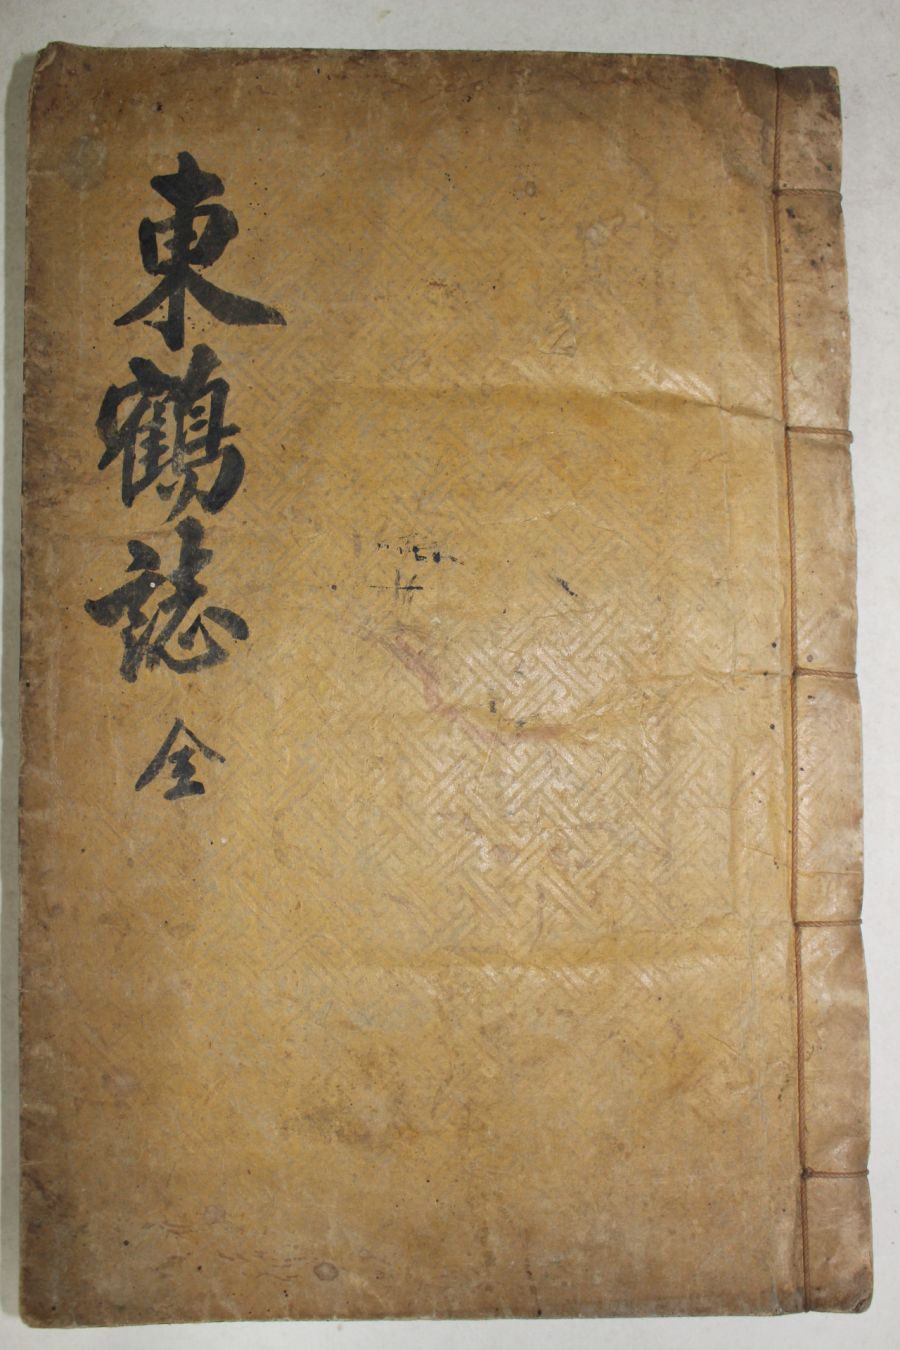 東鶴誌 全